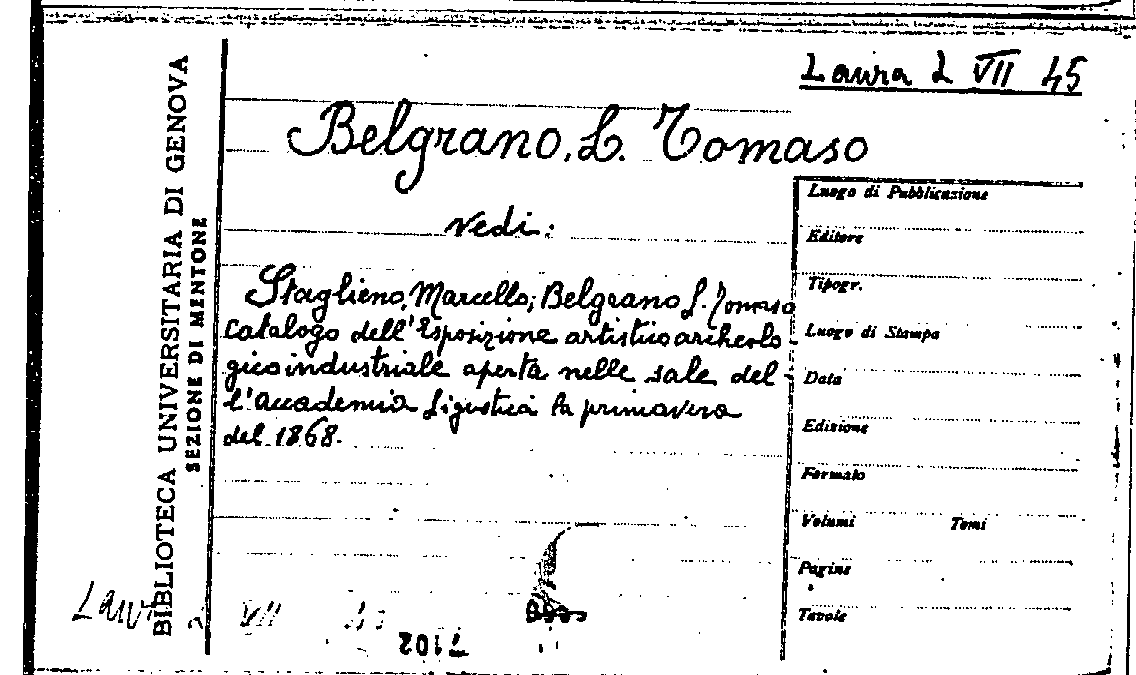 Laura L VII 45
BIBLIOTECA UNIVERSITARIA DI GENOVA
SEZIONE DI MENTONE
Belgrano, L. Tomaso
vedi:
Staglieno, Marcello; Belgrano L. Tomaso
Catalogo dell'Esposizione artistico archeolo-
gico industriale aperta nelle sale del-
l'Accademia Ligustica la primavera
del 1868.
Luogo di Pubblicazione
Editore
Tipogr.
Luogo di Stampa
Data
Edizione
Formato
Volumi Tomi
Pagine
Tavole
VII